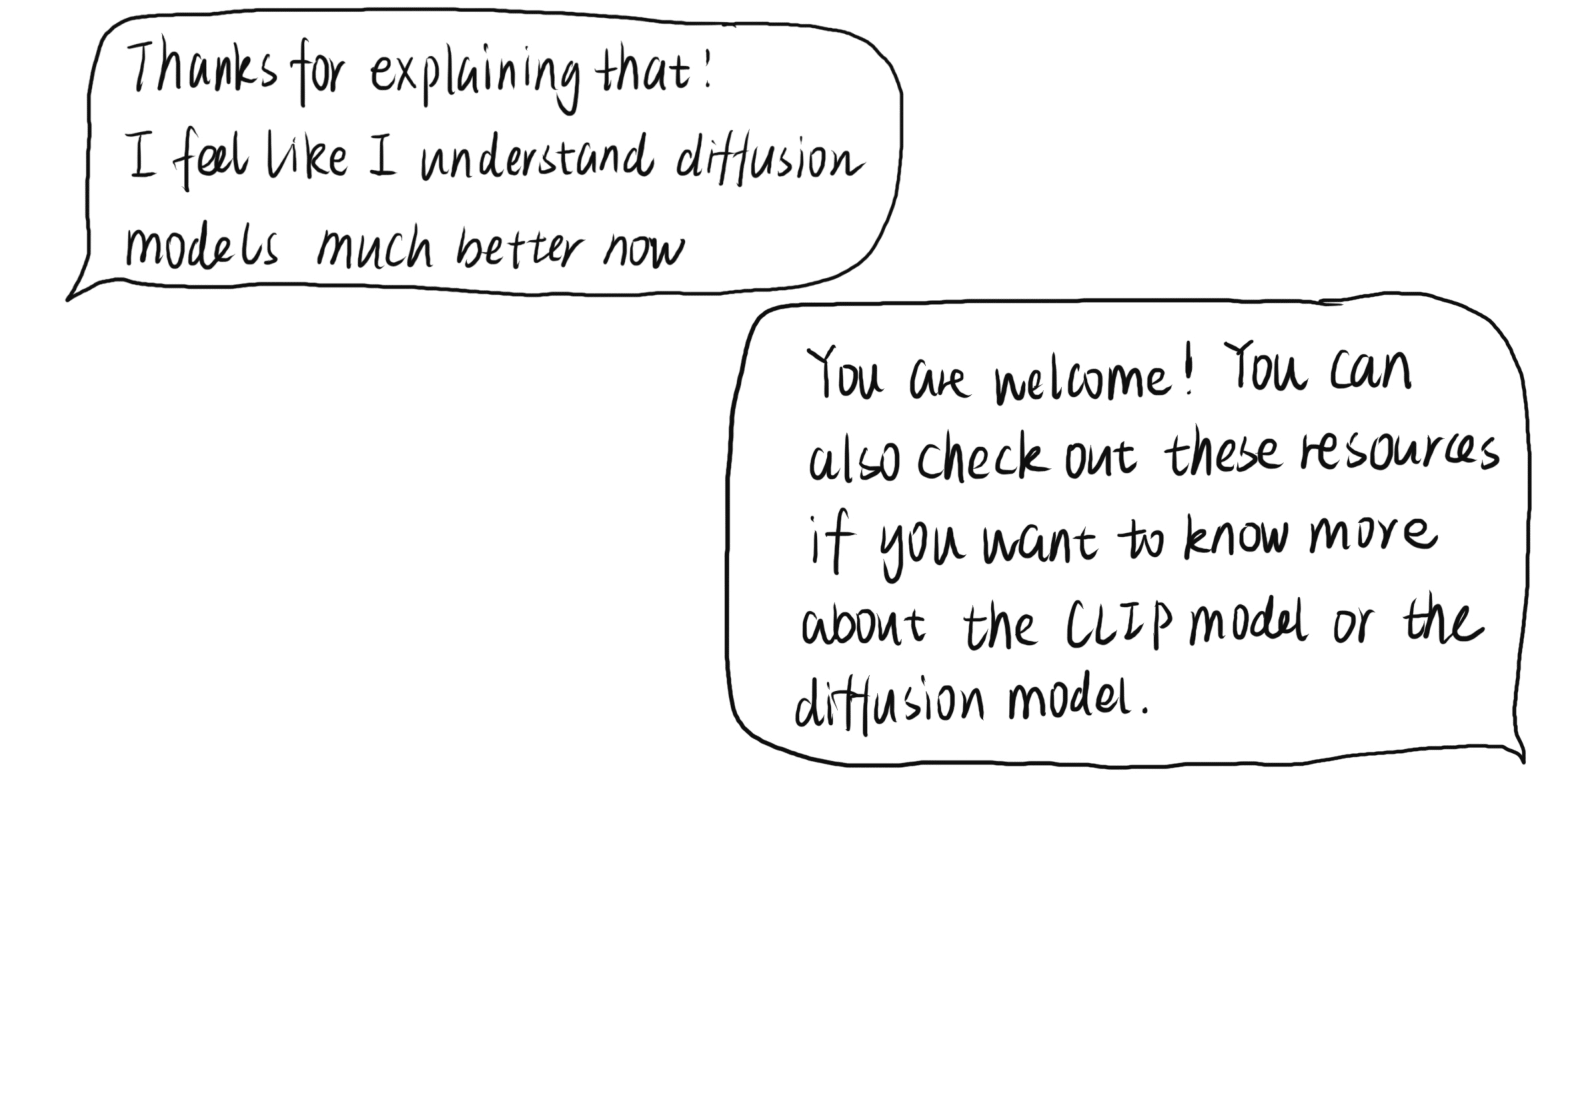 Thanks for explaining that!
I feel like I understand diffusion
models much better now
You are welcome! You can
also check out these resources
if you want to know more
about the CLIP model or the
diffusion model.